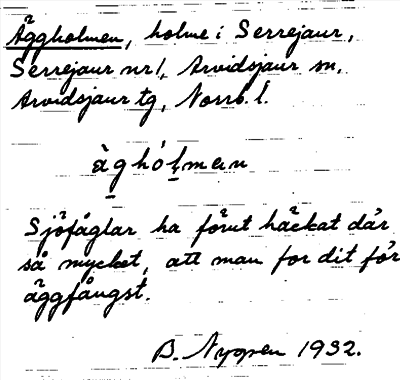 Äggholmen, holme i Serrejaur,
Serrejaur nr 1, Arvidsjaur sn,
Arvidsjaur tg, Norrb. l.
ä̀ghólmɐn
Sjöfåglar ha förut häckat där
så mycket, att man for dit för
äggfångst.
B. Nygren 1932.